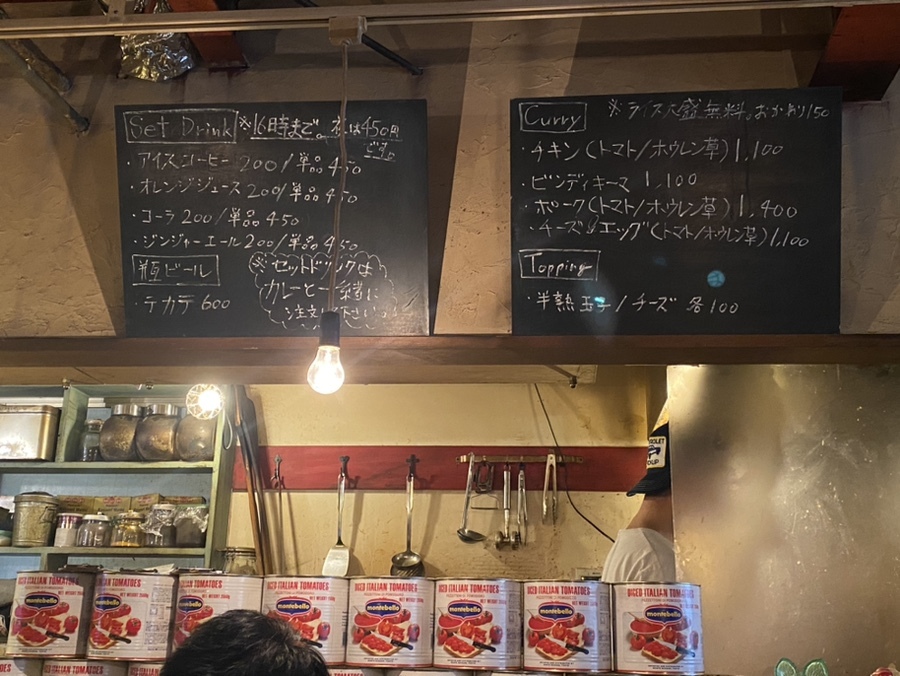 Set Drink ※16時まで。夜は450円
です。
・アイスコーヒー 200/単品 450
・オレンジジュース 200/単品 450
・コーラ 200/単品 450
・ジンジャーエール 200/単品 450
瓶ビール
・テカテ 600
※セットドリンクは
カレーと一緒に
注文下さいっ
Curry ※ライス大盛無料。おかわり150
・チキン(トマト/ホウレン草) 1,100
・ビンディキーマ 1,100
・ポーク(トマト/ホウレン草) 1,400
・チーズ&エッグ(トマト/ホウレン草) 1,100
Topping
・半熟玉子/チーズ 各100
DICED ITALIAN TOMATOES
montebello
DICED ITALIAN TOMATOES
montebello
DICED ITALIAN TOMATOES
montebello
DICED ITALIAN TOMATOES
montebello
DICED ITALIAN TOMATOES
montebello
DICED ITALIAN TOMATOES
montebello
DICED ITALIAN TOMATOES
montebello
DICED ITALIAN TOMATOES
montebello